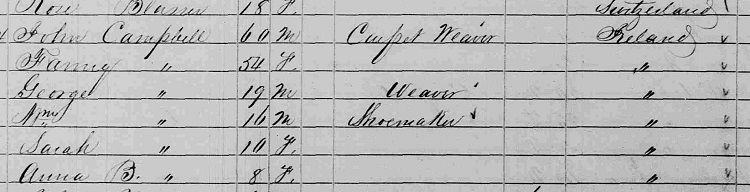 Rose 18 F. Switzerland
John Campbell 60 M Carpet Weaver Ireland
Fanny " 54 F. "
George " 19 M Weaver "
Wm " 16 M Shoemaker "
Sarah " 10 F. "
Anna B. " 8 F. "